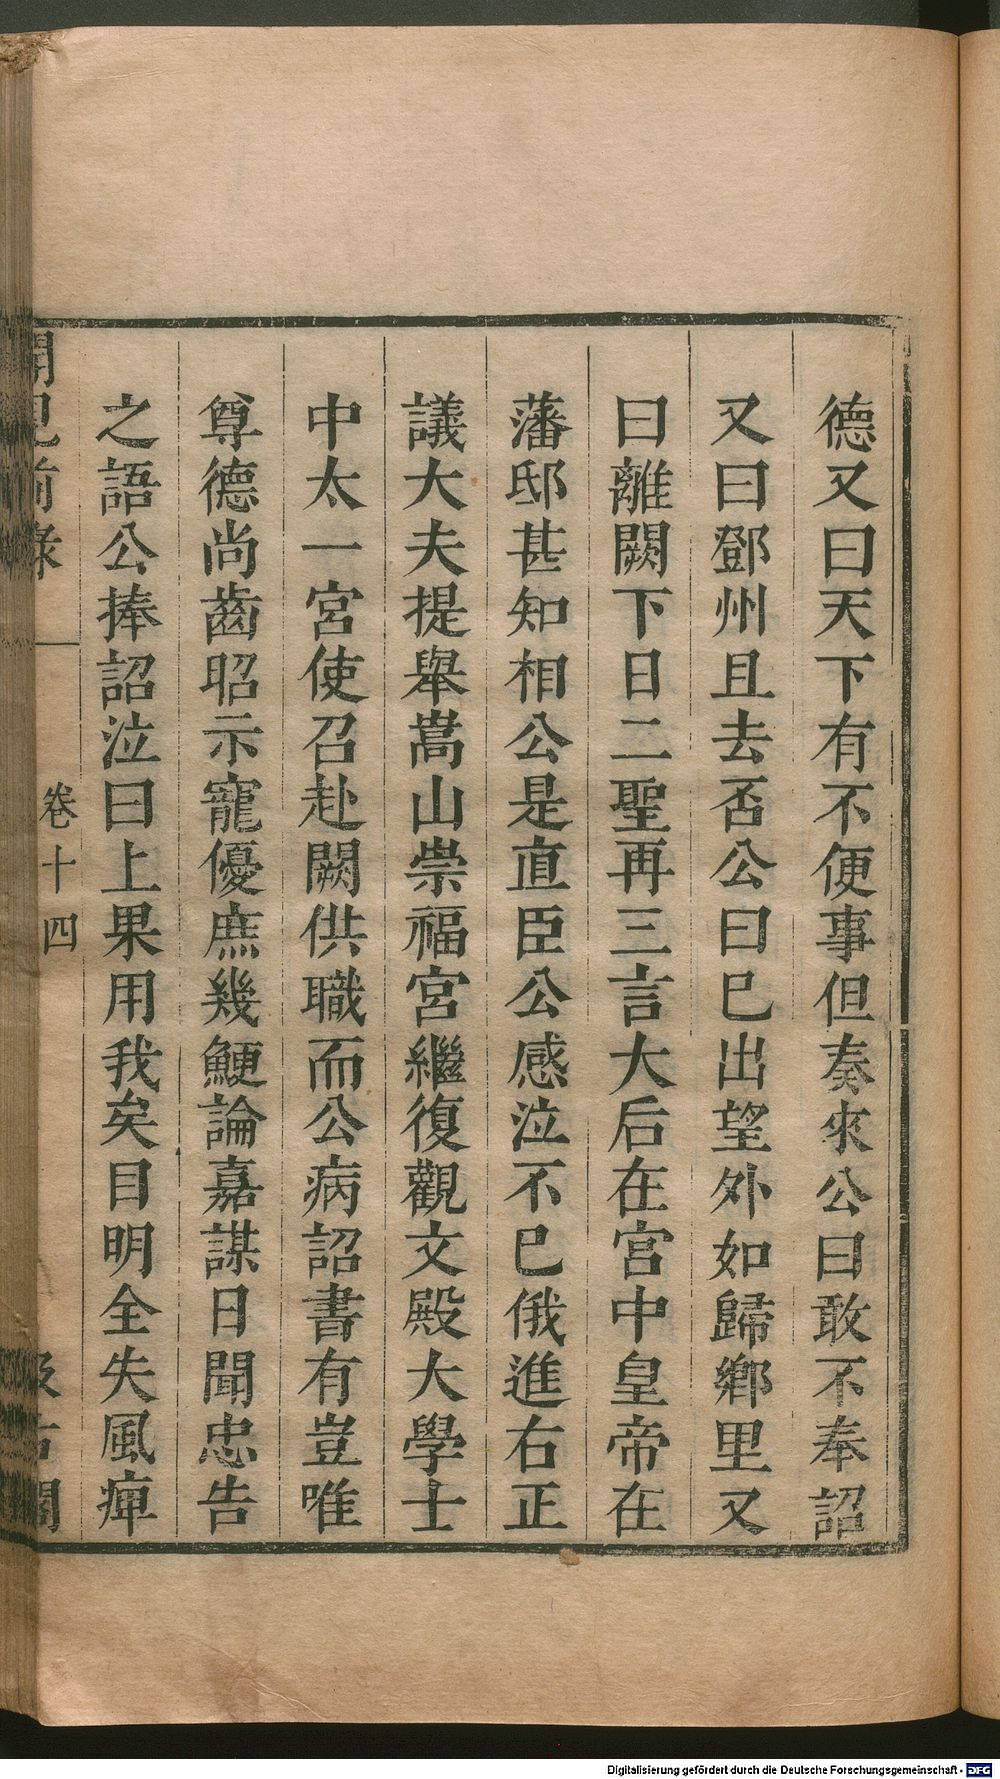 德又曰天下有不便事但奏來公曰敢不奉詔
又曰鄧州且去否公曰巳出望外如歸鄉里又
曰離闕下日二聖再三言大后在宮中皇帝在
藩邸甚知相公是直臣公感泣不巳俄進右正
議大夫提舉嵩山崇福宮繼復觀文殿大學士
中太一宮使召赴闕供職而公病詔書有豈唯
尊德尚齒昭示寵優庶幾鯁論嘉謀日聞忠告
之語公捧詔泣曰上果用我矣目明全失風痺
聞見前錄 卷十四 汲古閣
Digitalisierung gefördert durch die Deutsche Forschungsgemeinschaft - DFG